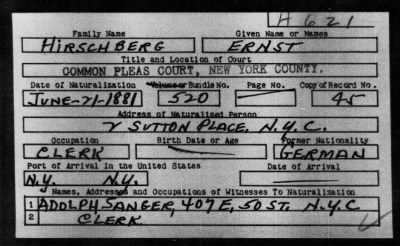 H 621
Family Name Given Name or Names
HIRSCHBERG ERNST
Title and Location of Court
COMMON PLEAS COURT, NEW YORK COUNTY.
Date of Naturalization Volume or Bundle No. Page No. Copy of Record No.
JUNE-21-1881 520 45
Address of Naturalized Person
2 SUTTON PLACE, N.Y.C.
Occupation Birth Date or Age Former Nationality
CLERK GERMAN
Port of Arrival in the United States Date of Arrival
N.Y. N.Y.
Names, Addresses and Occupations of Witnesses To Naturalization
1 ADOLPH SANGER, 407 E, 50 ST. N.Y.C
2 CLERK